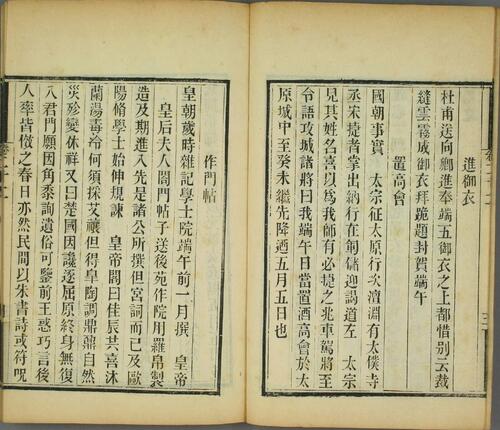 進御衣
杜甫送向卿進奉端五御衣之上都惜別云裁
縫雲霧成御衣拜跪題封賀端午
置高會
國朝事實　太宗征太原行次澶淵有太僕寺
丞宋捷者掌出納行在軍儲迎謁道左　太宗
見其姓名喜以為我師有必捷之兆車駕將至
令語攻城諸將曰我端午日當置酒高會於太
原城中至癸未繼先降迺五月五日也
作門帖
皇朝歲時雜記學士院端午前一月撰　皇帝
皇后夫人閤門帖子送後苑作院用羅帛製
造及期進入先是諸公所撰但宮詞而已及歐
陽脩學士始伸規諫　皇帝閤曰佳辰共喜沐
蘭湯毒沴何須採艾禳但得皋陶調鼎鼐自然
災殄變休祥又曰楚國因讒逐屈原終身無復
入君門願因角黍詢遺俗可鑒前王惑巧言後
人率皆倣之春日亦然民間以朱書詩或符咒